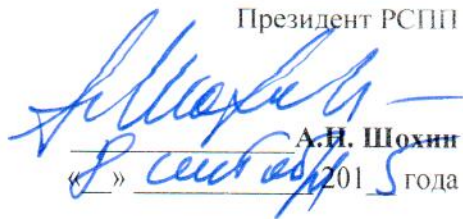 Президент РСПП
А.Н. Шохин
«8» сентября 2015 года